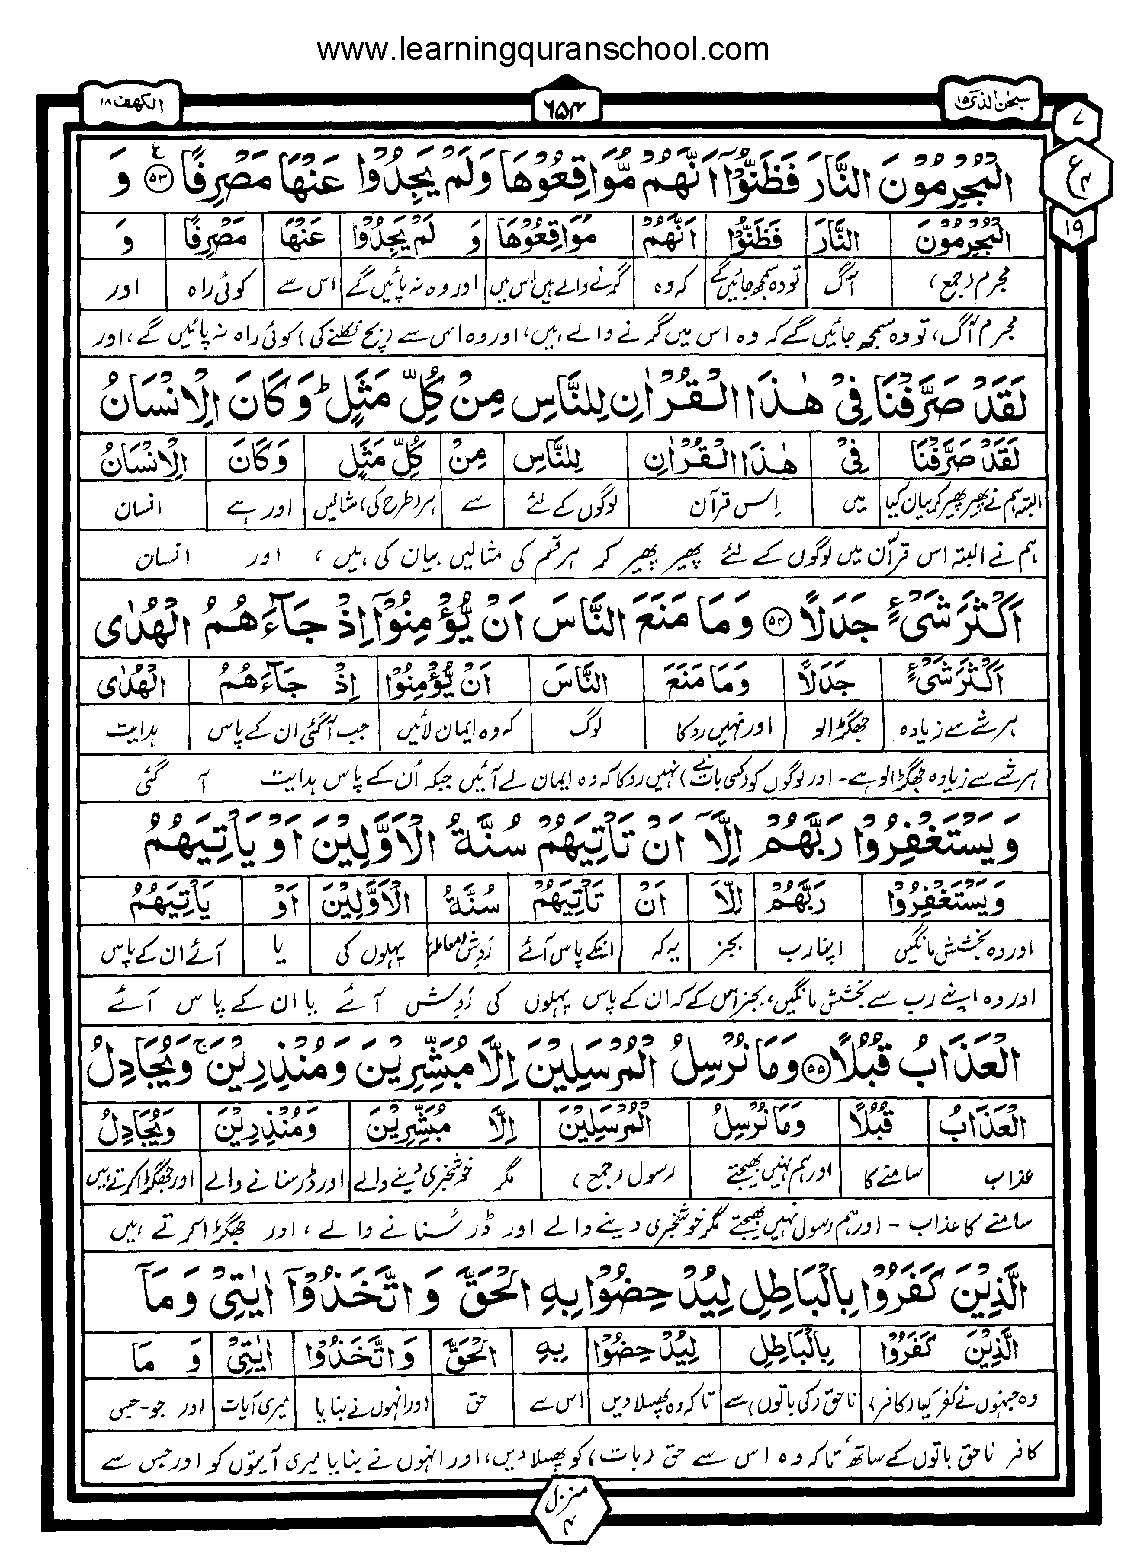 www.learningquranschool.com
سبحٰن الذی ۱۵
۶۵۴
الکھف ۱۸
۷
ع
۴
۱۹
الْمُجْرِمُوْنَ النَّارَ فَظَنُّوْۤا اَنَّهُمْ مُّوَاقِعُوْهَا وَلَمْ يَجِدُوْا عَنْهَا مَصْرِفًا ۵۳ وَ
الْمُجْرِمُوْنَ النَّارَ فَظَنُّوْا اَنَّهُمْ مُوَاقِعُوْهَا وَ لَمْ يَجِدُوْا عَنْهَا مَصْرِفًا وَ
مجرم (جمع) آگ تو وہ سمجھ جائیں گے کہ وہ گرنے والے ہیں اس میں اور وہ نہ پائیں گے اس سے کوئی راہ اور
مجرم آگ، تو وہ سمجھ جائیں گے کہ وہ اس میں گرنے والے ہیں، اور وہ اس سے (بچ نکلنے کی) کوئی راہ نہ پائیں گے، اور
لَقَدْ صَرَّفْنَا فِيْ هٰذَا الْقُرْاٰنِ لِلنَّاسِ مِنْ كُلِّ مَثَلٍ ؕ وَكَانَ الْاِنْسَانُ
لَقَدْ صَرَّفْنَا فِيْ هٰذَا الْقُرْاٰنِ لِلنَّاسِ مِنْ كُلِّ مَثَلٍ وَكَانَ الْاِنْسَانُ
البتہ ہم نے پھیر پھیر کر بیان کیا میں اِس قرآن لوگوں کے لئے سے ہر (طرح کی) مثالیں اور ہے انسان
ہم نے البتہ اس قرآن میں لوگوں کے لئے پھیر پھیر کر ہر قسم کی مثالیں بیان کی ہیں، اور انسان
اَكْثَرَ شَيْءٍ جَدَلًا ۵۴ وَمَا مَنَعَ النَّاسَ اَنْ يُّؤْمِنُوْۤا اِذْ جَآءَهُمُ الْهُدٰى
اَكْثَرَ شَيْءٍ جَدَلًا وَمَا مَنَعَ النَّاسَ اَنْ يُّؤْمِنُوْا اِذْ جَآءَهُمُ الْهُدٰى
ہر شے سے زیادہ جھگڑالو اور نہیں روکا لوگ کہ وہ ایمان لائیں جب آگئی ان کے پاس ہدایت
ہر شے سے زیادہ جھگڑالو ہے۔ اور لوگوں کو (کسی بات نے) نہیں روکا کہ وہ ایمان لے آئیں جبکہ اُن کے پاس ہدایت آ گئی
وَيَسْتَغْفِرُوْا رَبَّهُمْ اِلَّاۤ اَنْ تَاْتِيَهُمْ سُنَّةُ الْاَوَّلِيْنَ اَوْ يَاْتِيَهُمُ
وَيَسْتَغْفِرُوْا رَبَّهُمْ اِلَّا اَنْ تَاْتِيَهُمْ سُنَّةُ الْاَوَّلِيْنَ اَوْ يَاْتِيَهُمُ
اور وہ بخشش مانگیں اپنا رب بجز یہ کہ انکے پاس آئے روش (معاملہ) پہلوں کی یا آئے ان کے پاس
اور وہ اپنے رب سے بخشش مانگیں، بجز اس کے کہ ان کے پاس پہلوں کی روش آئے یا ان کے پاس آئے
الْعَذَابُ قُبُلًا ۵۵ وَمَا نُرْسِلُ الْمُرْسَلِيْنَ اِلَّا مُبَشِّرِيْنَ وَمُنْذِرِيْنَ ۚ وَيُجَادِلُ
الْعَذَابُ قُبُلًا وَمَا نُرْسِلُ الْمُرْسَلِيْنَ اِلَّا مُبَشِّرِيْنَ وَمُنْذِرِيْنَ وَيُجَادِلُ
عذاب سامنے کا اور ہم نہیں بھیجتے رسول (جمع) مگر خوشخبری دینے والے اور ڈر سنانے والے اور جھگڑا کرتے ہیں
سامنے کا عذاب - اور ہم رسول نہیں بھیجتے مگر خوشخبری دینے والے اور ڈر سُنانے والے، اور جھگڑا کرتے ہیں
الَّذِيْنَ كَفَرُوْا بِالْبَاطِلِ لِيُدْحِضُوْا بِهِ الْحَقَّ وَ اتَّخَذُوْۤا اٰيٰتِيْ وَمَاۤ
الَّذِيْنَ كَفَرُوْا بِالْبَاطِلِ لِيُدْحِضُوْا بِهِ الْحَقَّ وَ اتَّخَذُوْا اٰيٰتِيْ وَ مَا
وہ جنہوں نے کفر کیا (کافر) ناحق (کی باتوں) سے تاکہ وہ پھسلا دیں اس سے حق اور انہوں نے بنایا میری آیات اور جو-جس
کافر ناحق باتوں کے ساتھ تاکہ وہ اس سے حق (بات) کو پھسلا دیں، اور انہوں نے بنایا میری آیتوں کو اور جس سے
منزل
۴